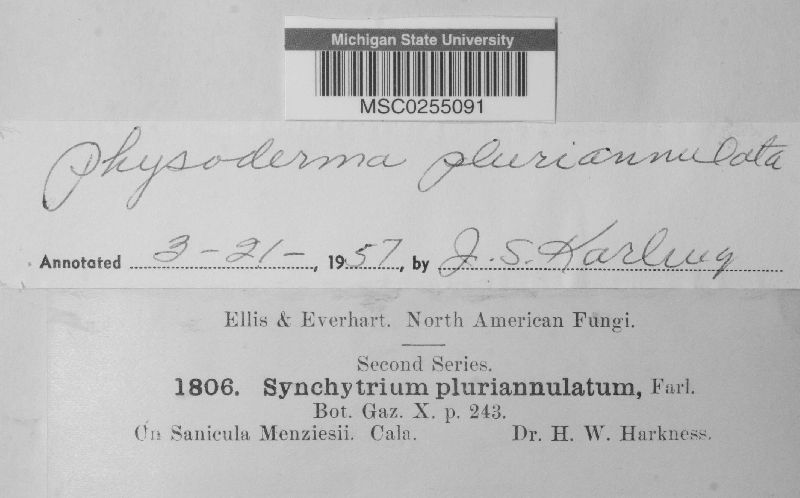 Michigan State University
MSC0255091
Physoderma pluriannulata
Annotated 3-21-, 1957, by J. S. Karling
Ellis & Everhart. North American Fungi.
Second Series.
1806. Synchytrium pluriannulatum, Farl.
Bot. Gaz. X. p. 243.
On Sanicula Menziesii. Cala. Dr. H. W. Harkness.